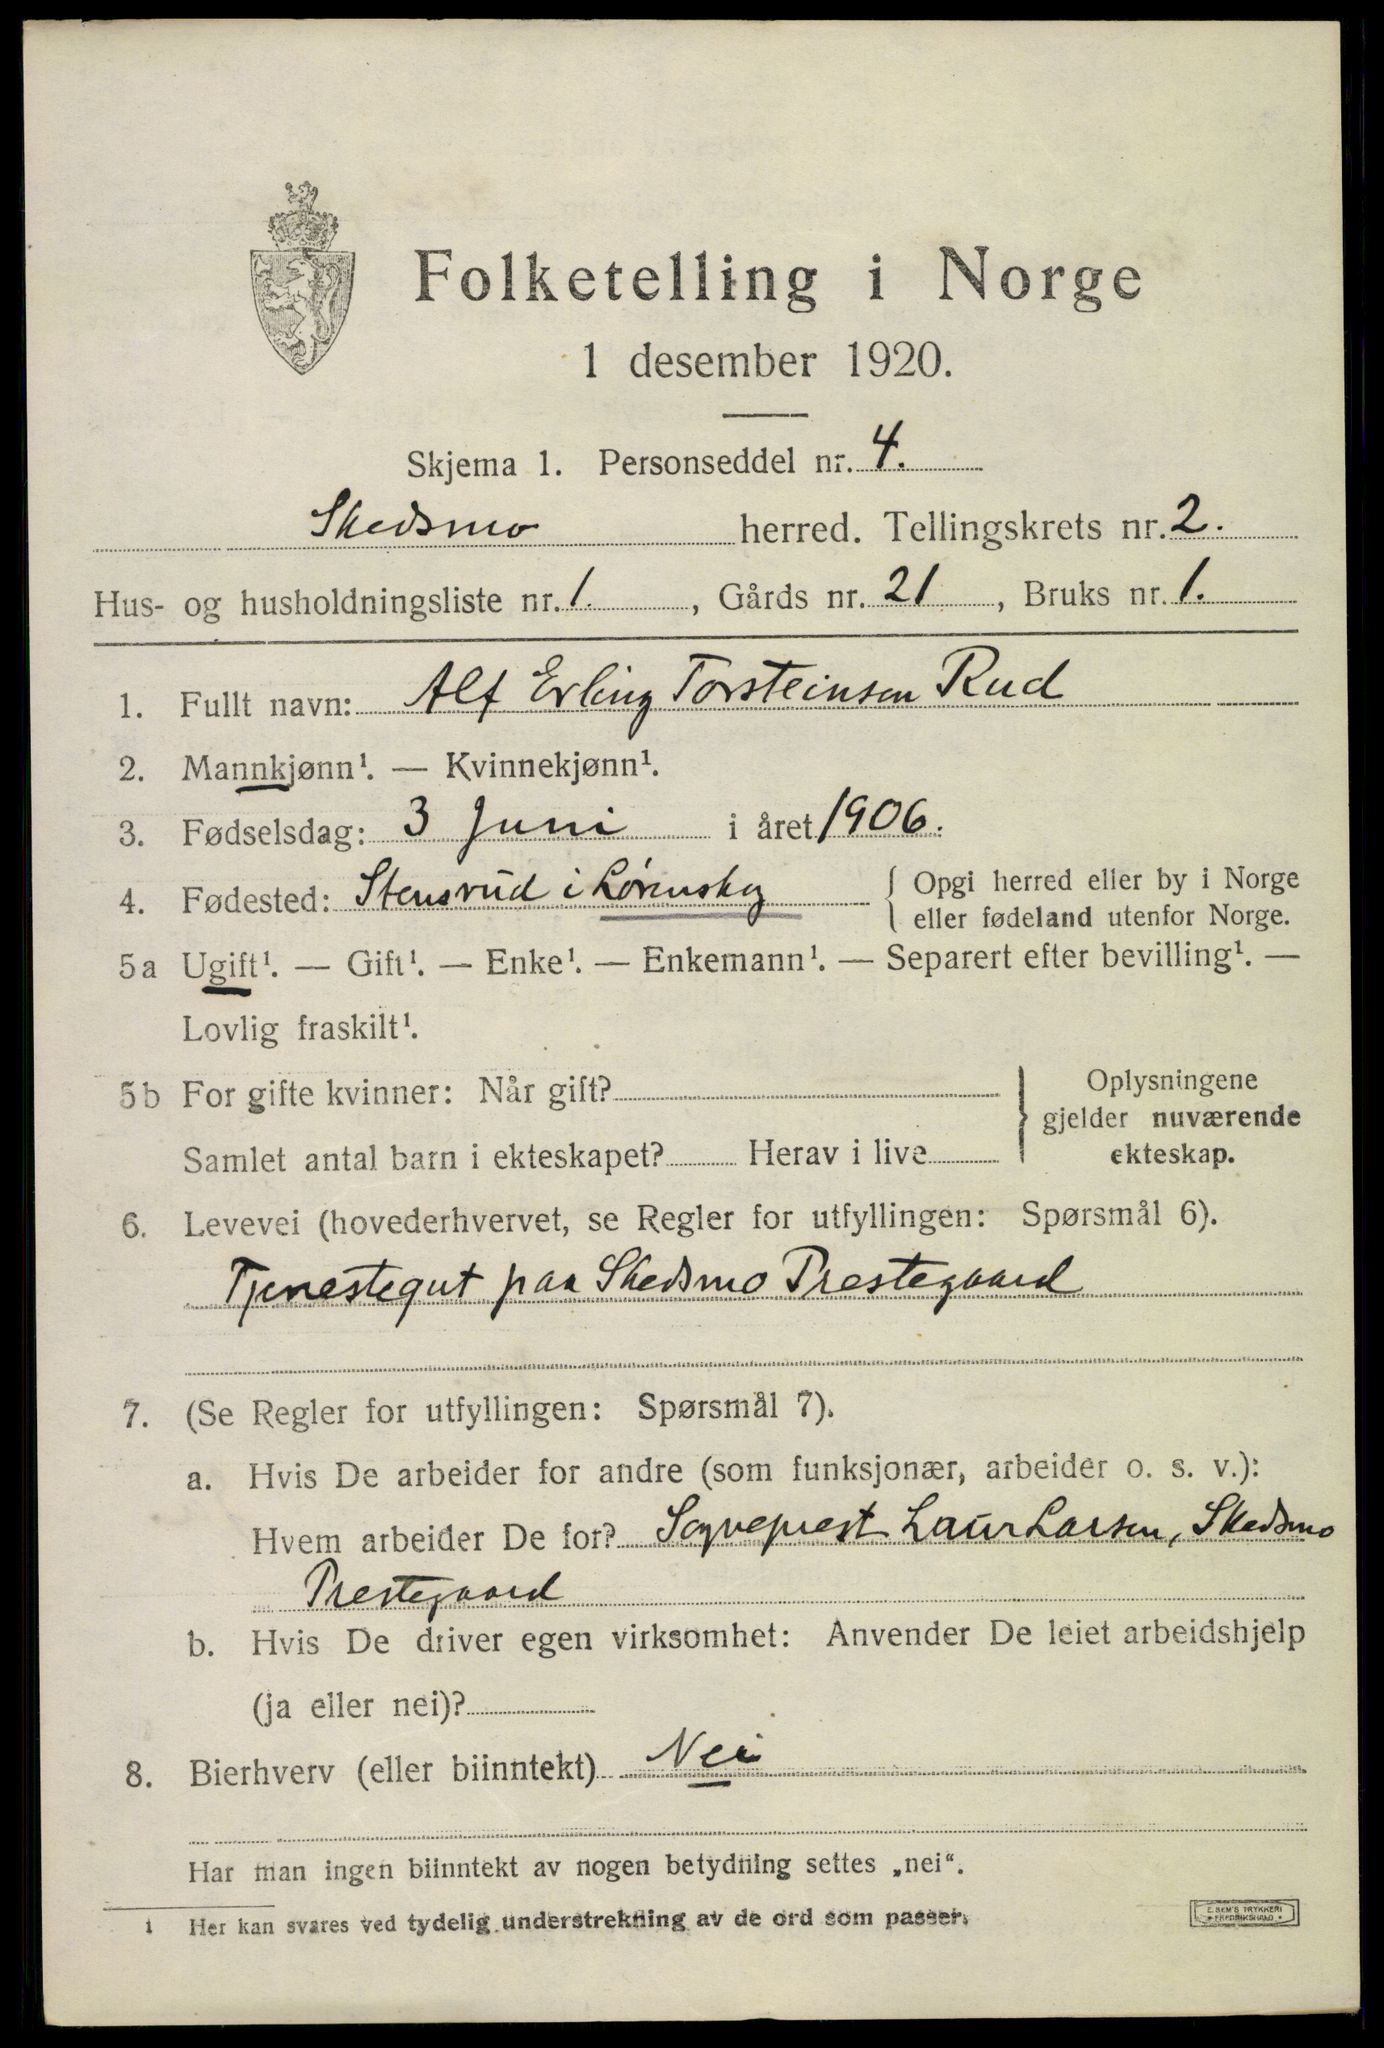 Folketelling i Norge
1 desember 1920.
Skjema 1. Personseddel nr. 4.
Skedsmo herred. Tellingskrets nr. 2.
Hus- og husholdningsliste nr. 1., Gårds nr. 21, Bruks nr. 1.
1. Fullt navn: Alf Erling Torsteinsen Rud
2. Mannkjønn¹. — Kvinnekjønn¹.
3. Fødselsdag: 3 Juni i året 1906.
4. Fødested: Stensrud i Lørenskog { Opgi herred eller by i Norge
eller fødeland utenfor Norge.
5a Ugift¹. — Gift¹. — Enke¹. — Enkemann¹. — Separert efter bevilling¹. —
Lovlig fraskilt¹.
5b For gifte kvinner: Når gift? } Oplysningene
gjelder nuværende
Samlet antal barn i ekteskapet? Herav i live ekteskap.
6. Levevei (hovederhvervet, se Regler for utfyllingen: Spørsmål 6).
Tjenestegut paa Skedsmo Prestegaard
7. (Se Regler for utfyllingen: Spørsmål 7).
a. Hvis De arbeider for andre (som funksjonær, arbeider o. s. v.):
Hvem arbeider De for? Sogneprest Laur Larsen, Skedsmo
Prestegaard
b. Hvis De driver egen virksomhet: Anvender De leiet arbeidshjelp
(ja eller nei)?
8. Bierhverv (eller biinntekt) Nei
Har man ingen biinntekt av nogen betydning settes „nei“.
1 Her kan svares ved tydelig understrekning av de ord som passer.
E. SEM'S TRYKKERI
FREDRIKSHALD